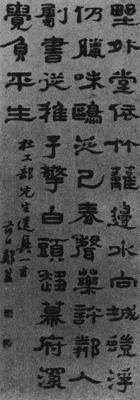 野外堂依竹籬邊水向城蟻浮
仍臘味鷗泛已春聲藥許鄰人
劚書從稚子擎白頭趨幕府深
覺負平生
杜工部先生遣興一首
谷口鄭簠